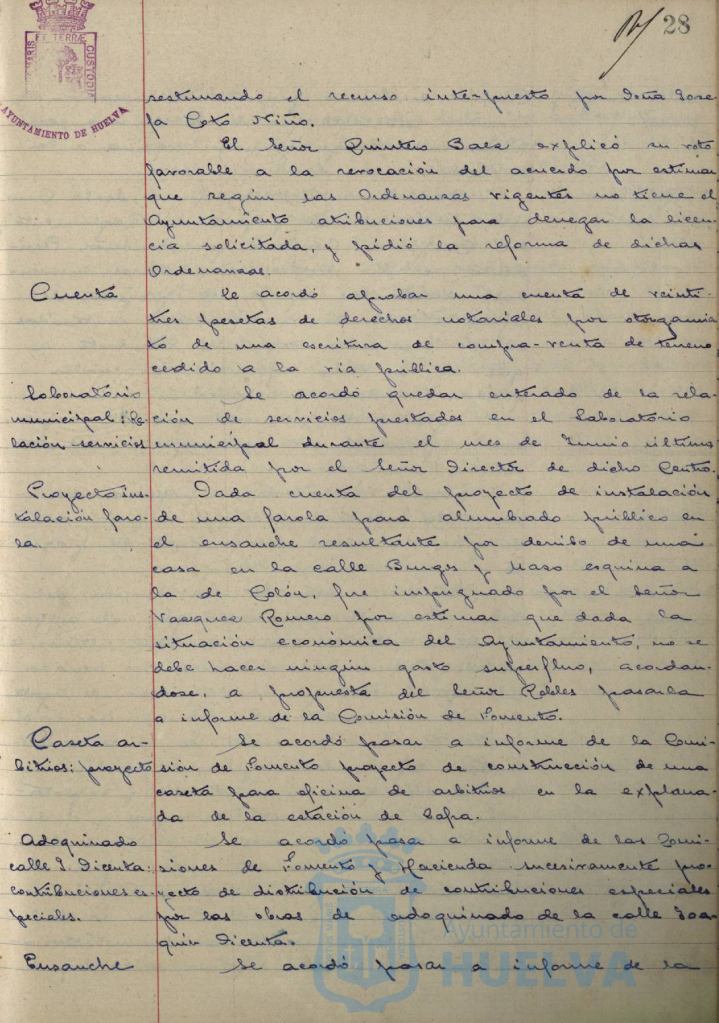 28
PORTUS MARIS ET TERRÆ CUSTODIA
AYUNTAMIENTO DE HUELVA
restimando el recurso interpuesto por Doña Jose-
fa Coto Niño.
El Señor Quintero Baez explicó su voto
favorable a la revocación del acuerdo por estimar
que según las Ordenanzas vigentes no tiene el
Ayuntamiento atribuciones para denegar la licen-
cia solicitada, y pidió la reforma de dichas
Ordenanzas.
Cuenta
Se acordó aprobar una cuenta de veinti-
tres pesetas de derechos notariales por otorgamien-
to de una escritura de compra-venta de terreno
cedido a la vía pública.
Laboratorio
municipal: Re-
lación servicios
Se acordó quedar enterado de la rela-
ción de servicios prestados en el Laboratorio
municipal durante el mes de Junio último
remitida por el Señor Director de dicho Centro.
Proyecto ins-
talación faro-
la.
Dada cuenta del proyecto de instalación
de una farola para alumbrado público en
el ensanche resultante por derribo de una
casa en la calle Burgos y Mazo esquina a
la de Colón, fue impugnado por el Señor
Vazquez Romero por estimar que dada la
situación económica del Ayuntamiento, no se
debe hacer ningún gasto superfluo, acordan-
dose, a propuesta del Señor Robles pasarla
a informe de la Comisión de Fomento.
Caseta ar-
bitrios: proyecto
Se acordó pasar a informe de la Comi-
sión de Fomento proyecto de construcción de una
caseta para oficina de arbitrios en la explana-
da de la estación de Zafra.
Adoquinado
calle J. Dicenta:
contribuciones es-
peciales.
Se acordó pasar a informe de las Comi-
siones de Fomento y Hacienda sucesivamente pro-
yecto de distribución de contribuciones especiales
por las obras de adoquinado de la calle Joa-
quin Dicenta.
Ensanche
Se acordó pasar a informe de la
Ayuntamiento de
HUELVA